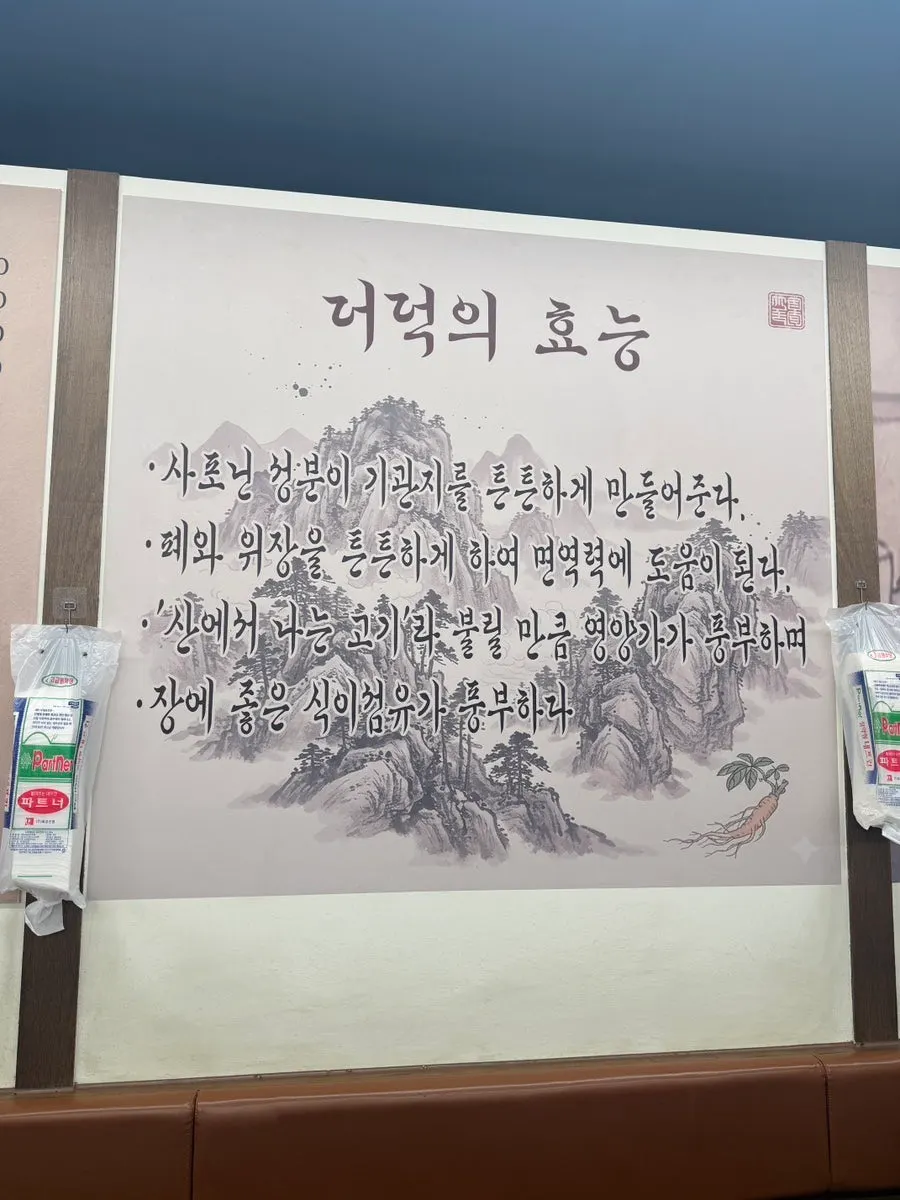 더덕의 효능
·사포닌 성분이 기관지를 튼튼하게 만들어준다.
·폐와 위장을 튼튼하게 하여 면역력에 도움이 된다.
·'산에서 나는 고기'라 불릴 만큼 영양가가 풍부하며
·장에 좋은 식이섬유가 풍부하다
Partner
파트너